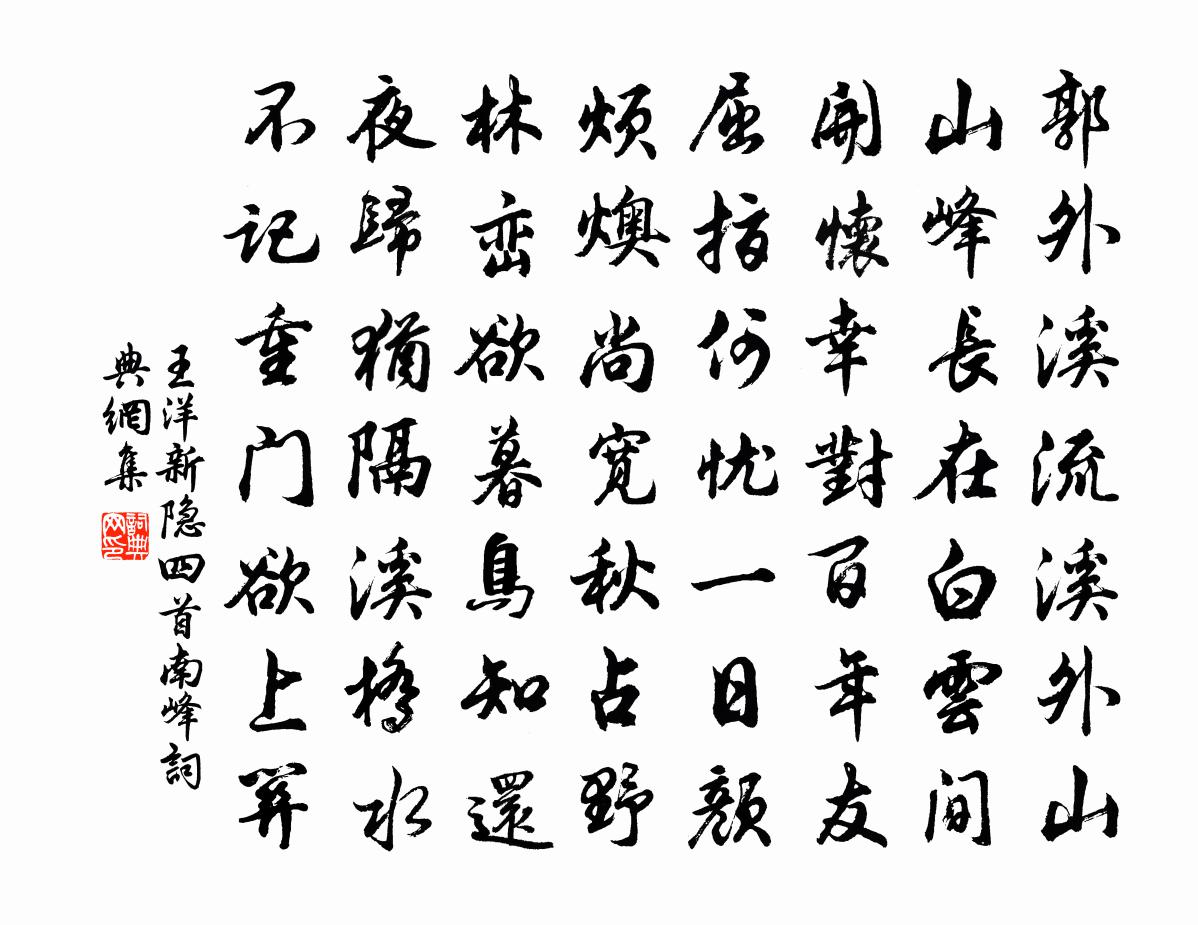 郭外溪流溪外山
山峰長在白雲間
開懷幸對百年友
屈指何忧一日顏
煩燠尚宽秋占野
林巒欲暮鳥知還
夜歸猶隔溪橋水
不记重门欲上關
王洋新隐四首南峰詞
典網集
詞典网印